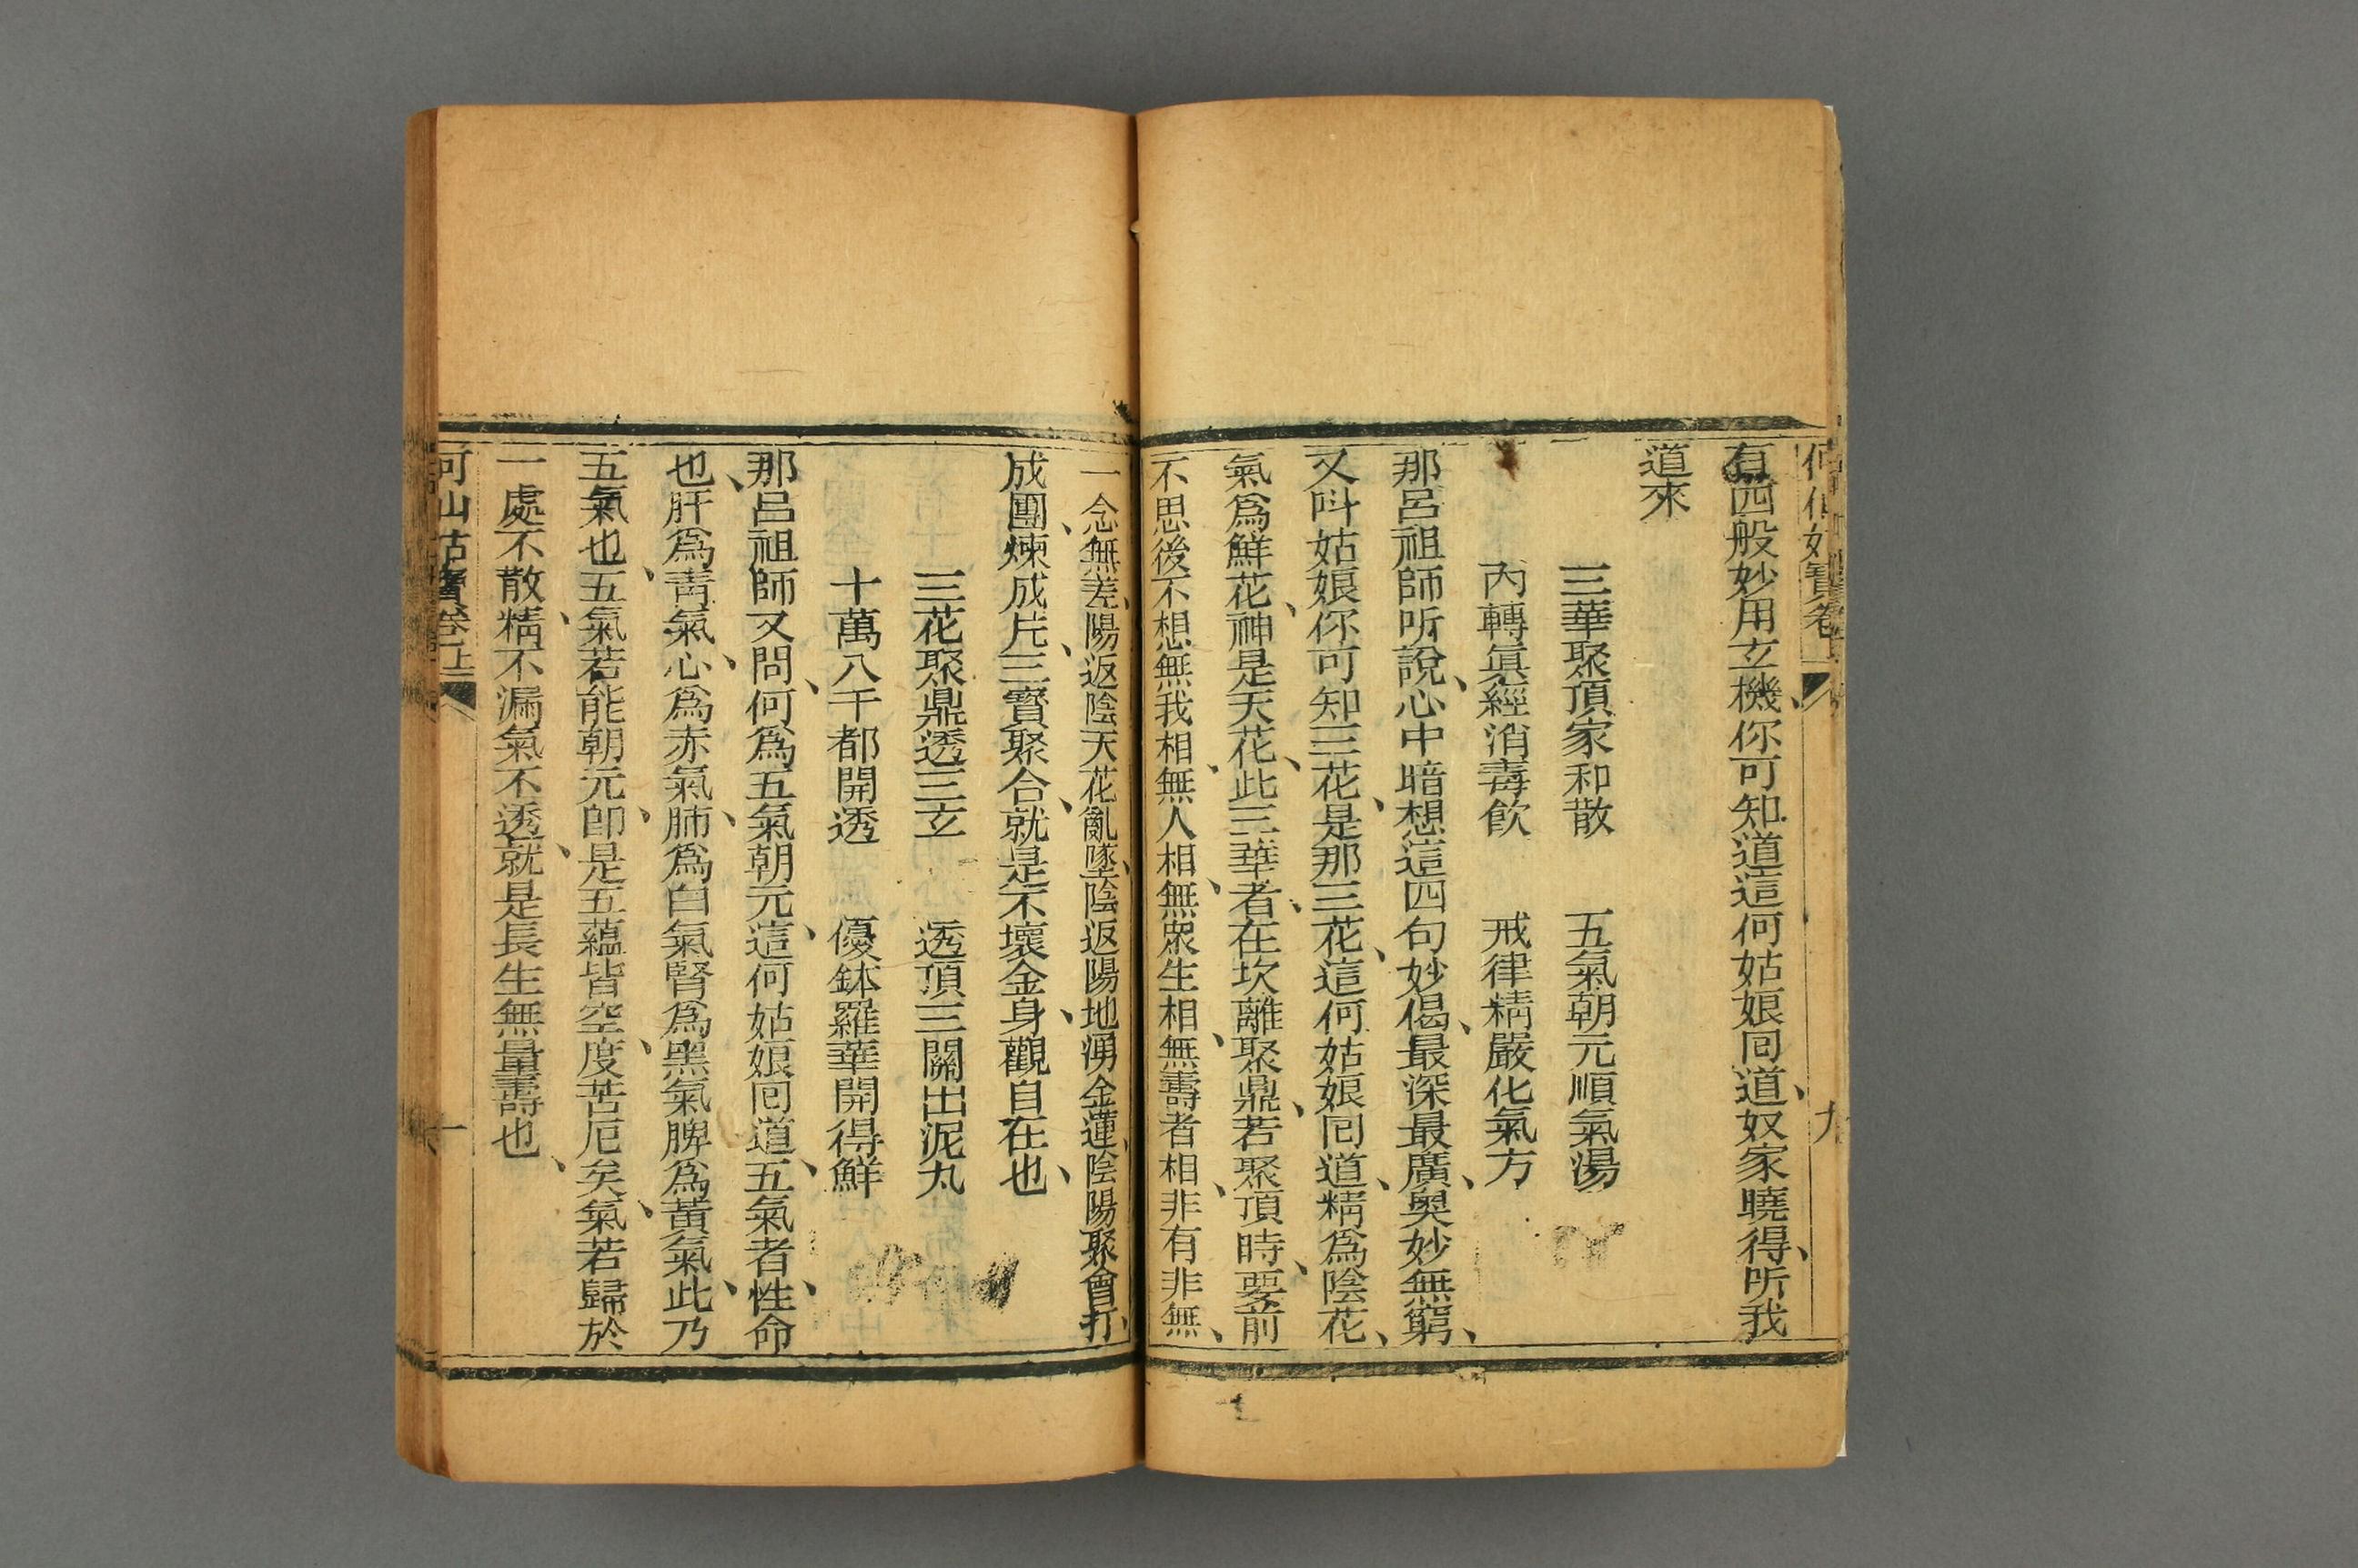 有四般妙用玄機、你可知道這何姑娘囘道、奴家曉得、听我
道來
三華聚頂家和散 五氣朝元順氣湯
內轉眞經消毒飲 戒律精嚴化氣方
那呂祖師听說、心中暗想這四句妙偈、最深最廣、奧妙無窮、
又呌姑娘你可知三花、是那三花、這何姑娘囘道、精爲陰花、
氣爲鮮花、神是天花、此三華者、在坎離聚鼎、若聚頂時、要前
不思後不想無我相、無人相、無衆生相、無壽者相、非有非無、
一念無差、陽返陰天花亂墜、陰返陽地湧金蓮、陰陽聚會打、
成團、煉成片、三寶聚合、就是不壞金身、觀自在也、
三花聚鼎透三玄 透頂三關出泥丸
十萬八千都開透 優鉢羅華開得鮮
那呂祖師又問、何爲五氣朝元、這何姑娘囘道、五氣者、性命
也、肝爲靑氣、心爲赤氣、肺爲白氣腎爲黑氣脾爲黃氣、此乃
五氣也、五氣若能朝元、卽是五蘊皆空、度苦厄矣、氣若歸於
一處不散、精不漏氣不透、就是長生無量壽也、